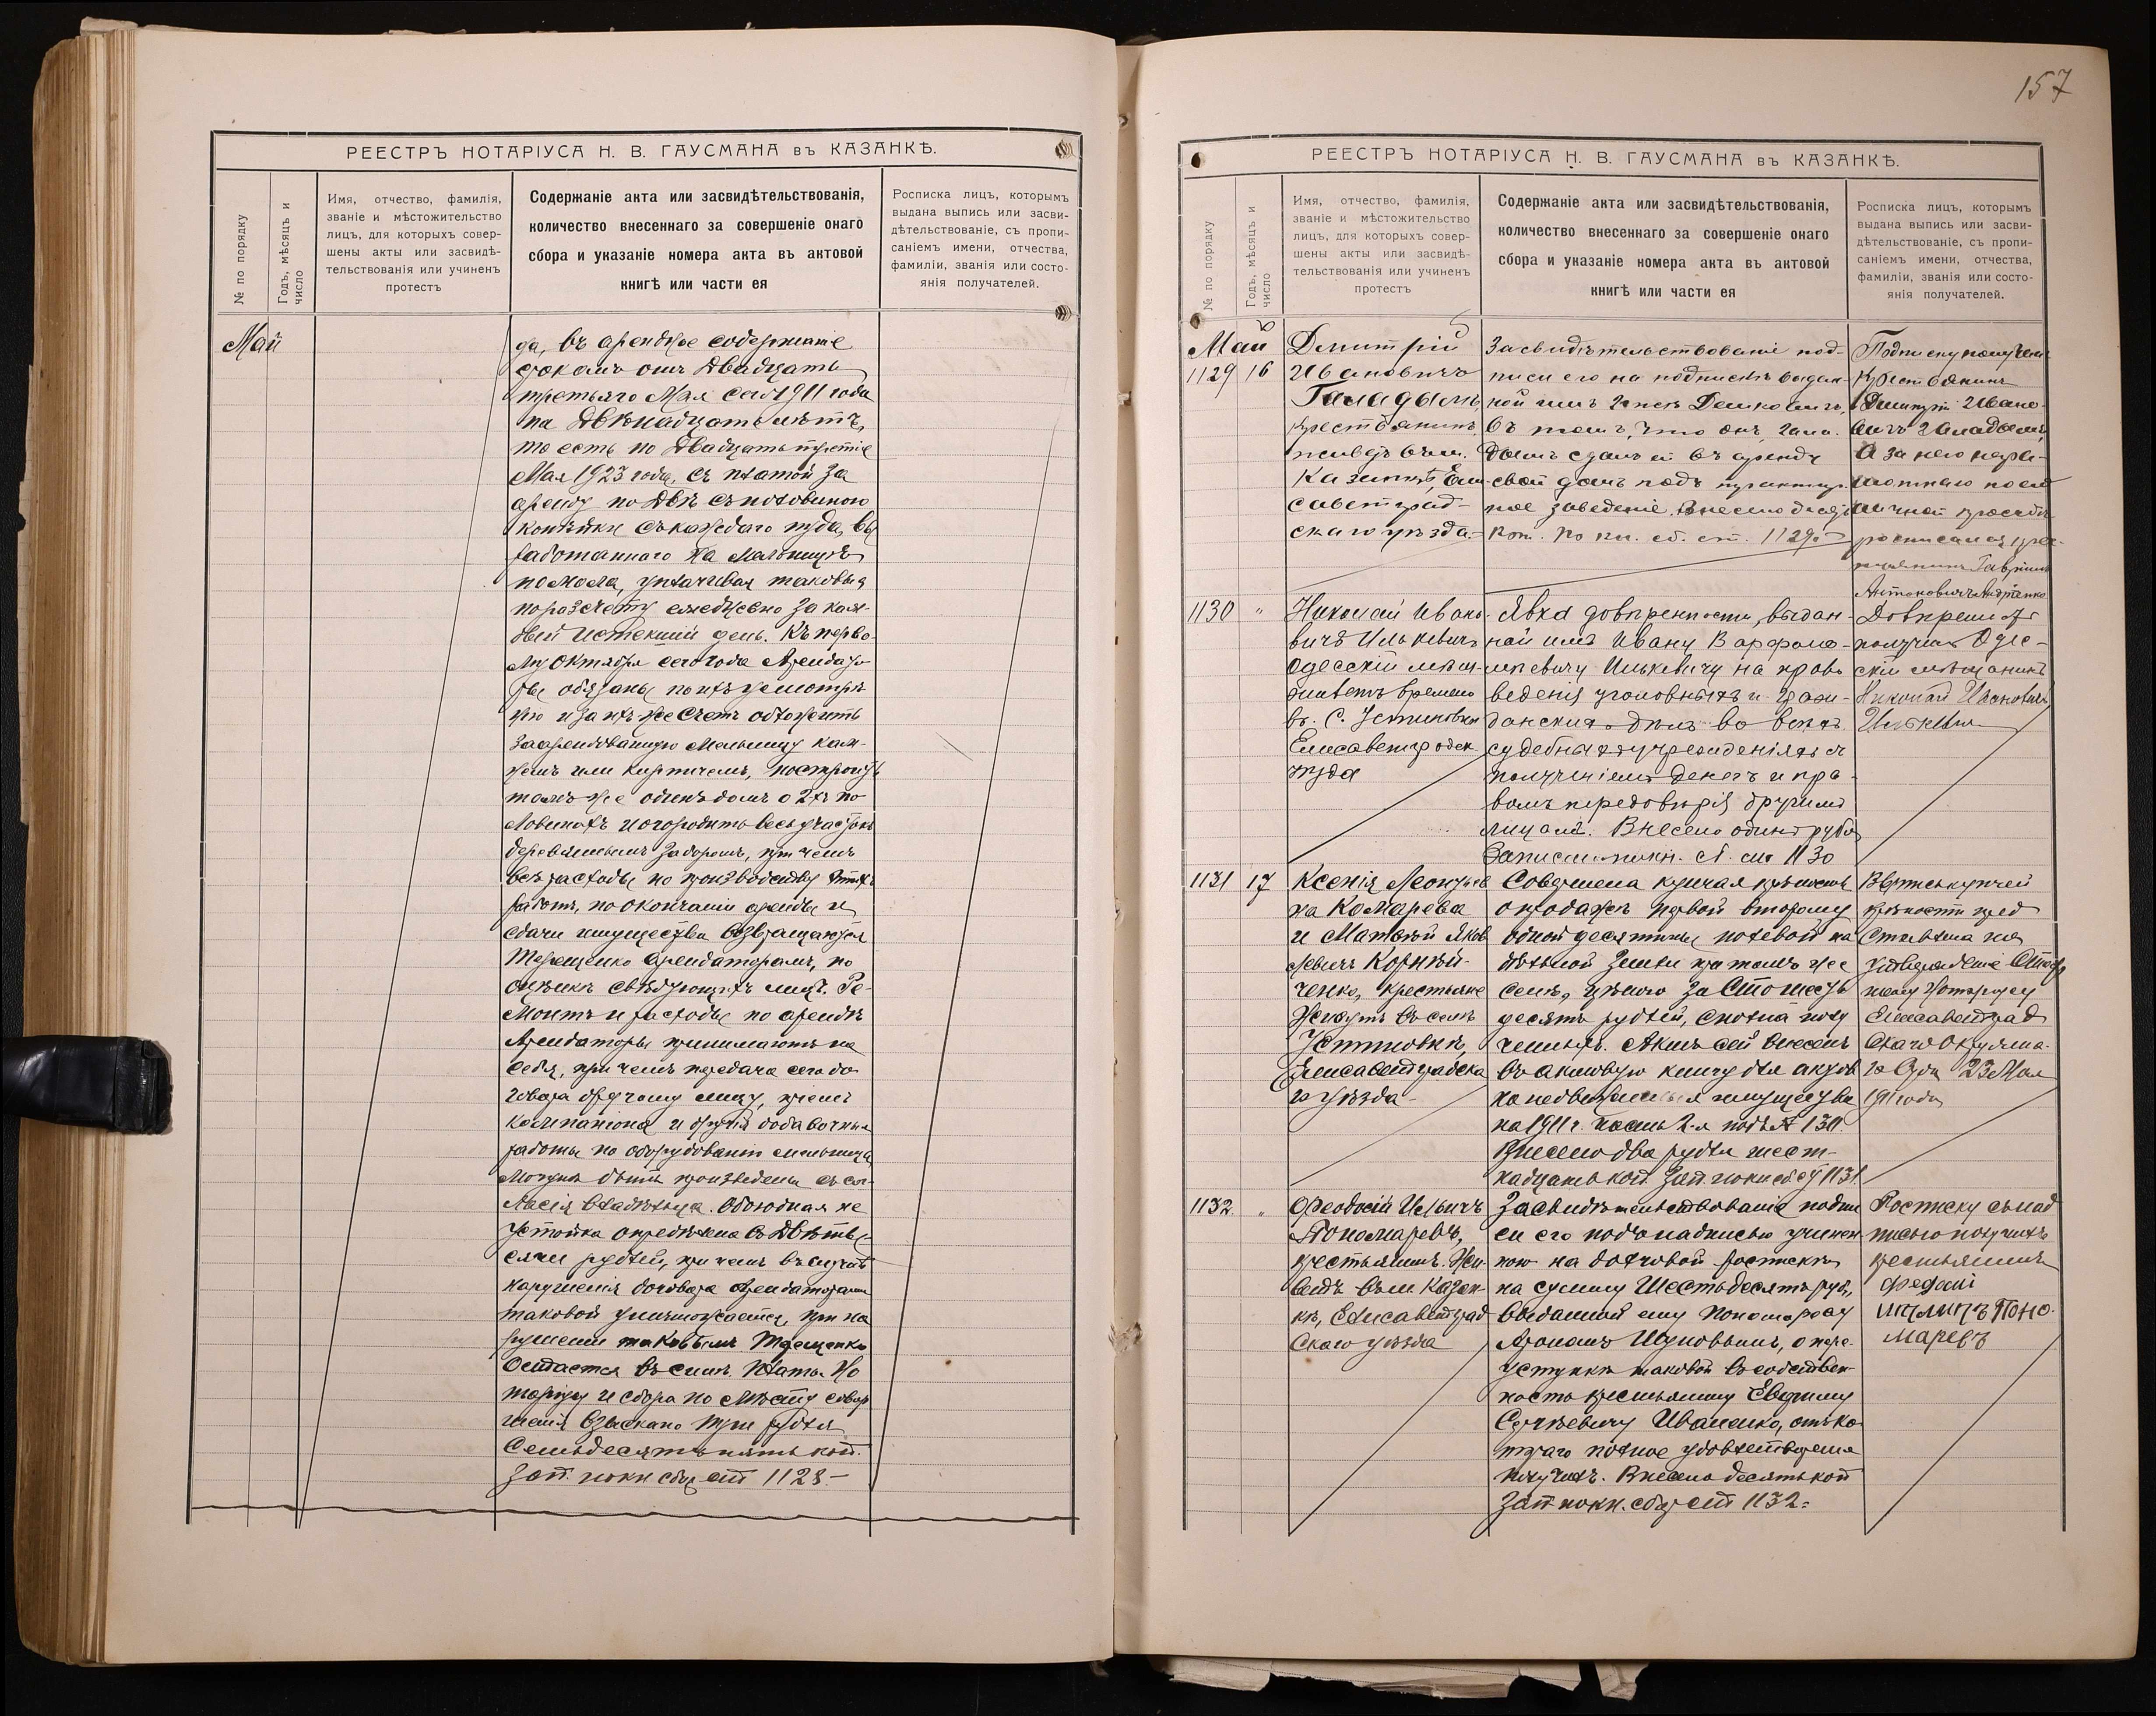 РЕЕСТРЪ НОТАРІУСА Н. В. ГАУСМАНА въ КАЗАНКѢ.
№ по порядку
Годъ, мѣсяцъ и
число
Имя, отчество, фамилія,
званіе и мѣстожительство
лицъ, для которыхъ совер-
шены акты или засвидѣ-
тельствованія или учиненъ
протестъ
Содержаніе акта или засвидѣтельствованія,
количество внесеннаго за совершеніе онаго
сбора и указаніе номера акта въ актовой
книгѣ или части ея
Росписка лицъ, которымъ
выдана выпись или засви-
дѣтельствованіе, съ пропи-
саніемъ имени, отчества,
фамиліи, званія или состо-
янія получателей.
Май
да, въ арендное содержаніе
срокомъ отъ Двадцать
третьяго Мая сего 1911 года
на Двѣнадцать лѣтъ,
то есть по Двадцать третіе
Мая 1923 года, съ платой за
аренду по Двѣ съ половиною
копѣйки съ каждаго пуда, вы
работаннаго на Мельницѣ
помола, уплачивая таковыя
по разсчету ежедневно за каж-
дый истекшій день. Къ перво-
му Октября сего года Арендато-
ры обязаны по
и за ихъ же счетъ обложить
заарендованную Мельницу кам-
немъ или кирпичемъ, построить
тамъ же одинъ домъ о 2хъ по-
ловинахъ и огородить весь участокъ
деревяннымъ заборомъ, при чемъ
всѣ расходы по производству этихъ
работъ, по окончаніи аренды и
сдачи имущества возвращаются
Терещенко арендаторамъ, по
оцѣнкѣ свѣдующихъ лицъ. Ре-
монтъ и расходы по арендѣ
Арендаторы принимаютъ на
себя, при чемъ передача сего до
говора другому лицу, пріемъ
компаніона и другія добавочныя
работы по оборудованію мельницы
могутъ быть произведены съ со-
гласія владѣльца. Обоюдная не
устойка опредѣлена въ Двѣ ты-
сячи рублей, при чемъ въ случаѣ
нарушенія договора арендаторами
таковой уничтожается, при на
рушеніи таковымъ Терещенко
остается въ силѣ. Платы Но
таріусу и сбора по мѣсту совер
шенія взыскано три рубля
Семьдесятъ пять коп.
Зап. по кн. сбор. ст 1128 –
157
РЕЕСТРЪ НОТАРІУСА Н. В. ГАУСМАНА въ КАЗАНКѢ.
№ по порядку
Годъ, мѣсяцъ и
число
Имя, отчество, фамилія,
званіе и мѣстожительство
лицъ, для которыхъ совер-
шены акты или засвидѣ-
тельствованія или учиненъ
протестъ
Содержаніе акта или засвидѣтельствованія,
количество внесеннаго за совершеніе онаго
сбора и указаніе номера акта въ актовой
книгѣ или части ея
Росписка лицъ, которымъ
выдана выпись или засви-
дѣтельствованіе, съ пропи-
саніемъ имени, отчества,
фамиліи, званія или состо-
янія получателей.
Май
1129 16
Димитрій
Ивановичъ
крестьянинъ
живетъ въ м.
Казанкѣ, Ели-
саветград-
скаго уѣзда.
Засвидѣтельствованіе под-
писи его на подпискѣ выдан-
ной имъ
въ томъ, что онъ,
сдалъ ей въ аренду
свой домъ подъ трактир-
ное заведеніе. Внесено
коп. по кн. сб. ст. 1129.
Подписку получилъ
крестьянинъ
Димитрій Ивано-
вичъ
А за него негра-
мотнаго по его
личной просьбѣ
росписался крес-
тьянинъ Гавріилъ
Антоновичъ
1130 "
Николай Ивано-
вичъ Илькевичъ
Одесскій мѣщ-
живетъ времено
въ С. Устиновкѣ
Елисаветградск
уѣзда
Явка довѣренности, выдан-
ной имъ Ивану Варфоло-
меевичу Илькевичу на право
веденія уголовныхъ и граж-
данскихъ дѣлъ во всѣхъ
судебныхъ учрежденіяхъ съ
полученіемъ денегъ и пра-
вомъ передовѣрія другимъ
лицамъ. Внесено одинъ рубль
Записано по кн. сб. ст 1130
Довѣренность
получилъ Одес-
скій мѣщанинъ
Николай Ивановичъ
1131 17
Ксенія Леонтьев
на Комарева
и Матвѣй Яков
левичъ Корнѣй-
ченко, крестьяне
Живутъ въ селѣ
Устиновкѣ,
Елисаветградска
го уѣзда –
Совершена купчая крѣпость
о продажѣ первой второму
одной десятины полевой на
дѣльной земли при томъ же
селѣ, цѣною за Сто шесть
десятъ рублей, сполна полу
ченныхъ. Актъ сей внесенъ
въ актовую книгу для актовъ
на недвижимыя имущества
на 1911 г. часть 2-я подъ № 131.
Внесено два рубля шест-
надцать коп. Зап. по кн сб ст 1131.
Выпись купчей
крѣпости пред
ставлена на
утвержденіе Стар-
шему Нотаріусу
Елисаветград
скаго Окружна-
го Суда 23 Мая
1911 года
1132. "
Феодосій Ильичъ
Пономаревъ,
крестьянинъ. Жи
ветъ въ м Казан-
кѣ, Елисаветград
скаго уѣзда
Засвидѣтельствованіе подпи
си его подъ надписью учинен
ною на долговой роспискѣ
на сумму Шестьдесятъ руб,
выданной ему Пономареву
о пере-
уступкѣ таковой въ собствен
ность крестьянину Евдокиму
Сергѣевичу Иваненко, отъ ко
тораго полное удовлетвореніе
получилъ. Внесено десять коп
Зап по кн. сбор ст 1132.
Росписку съ над
писью получилъ
крестьянинъ
Поно
маревъ